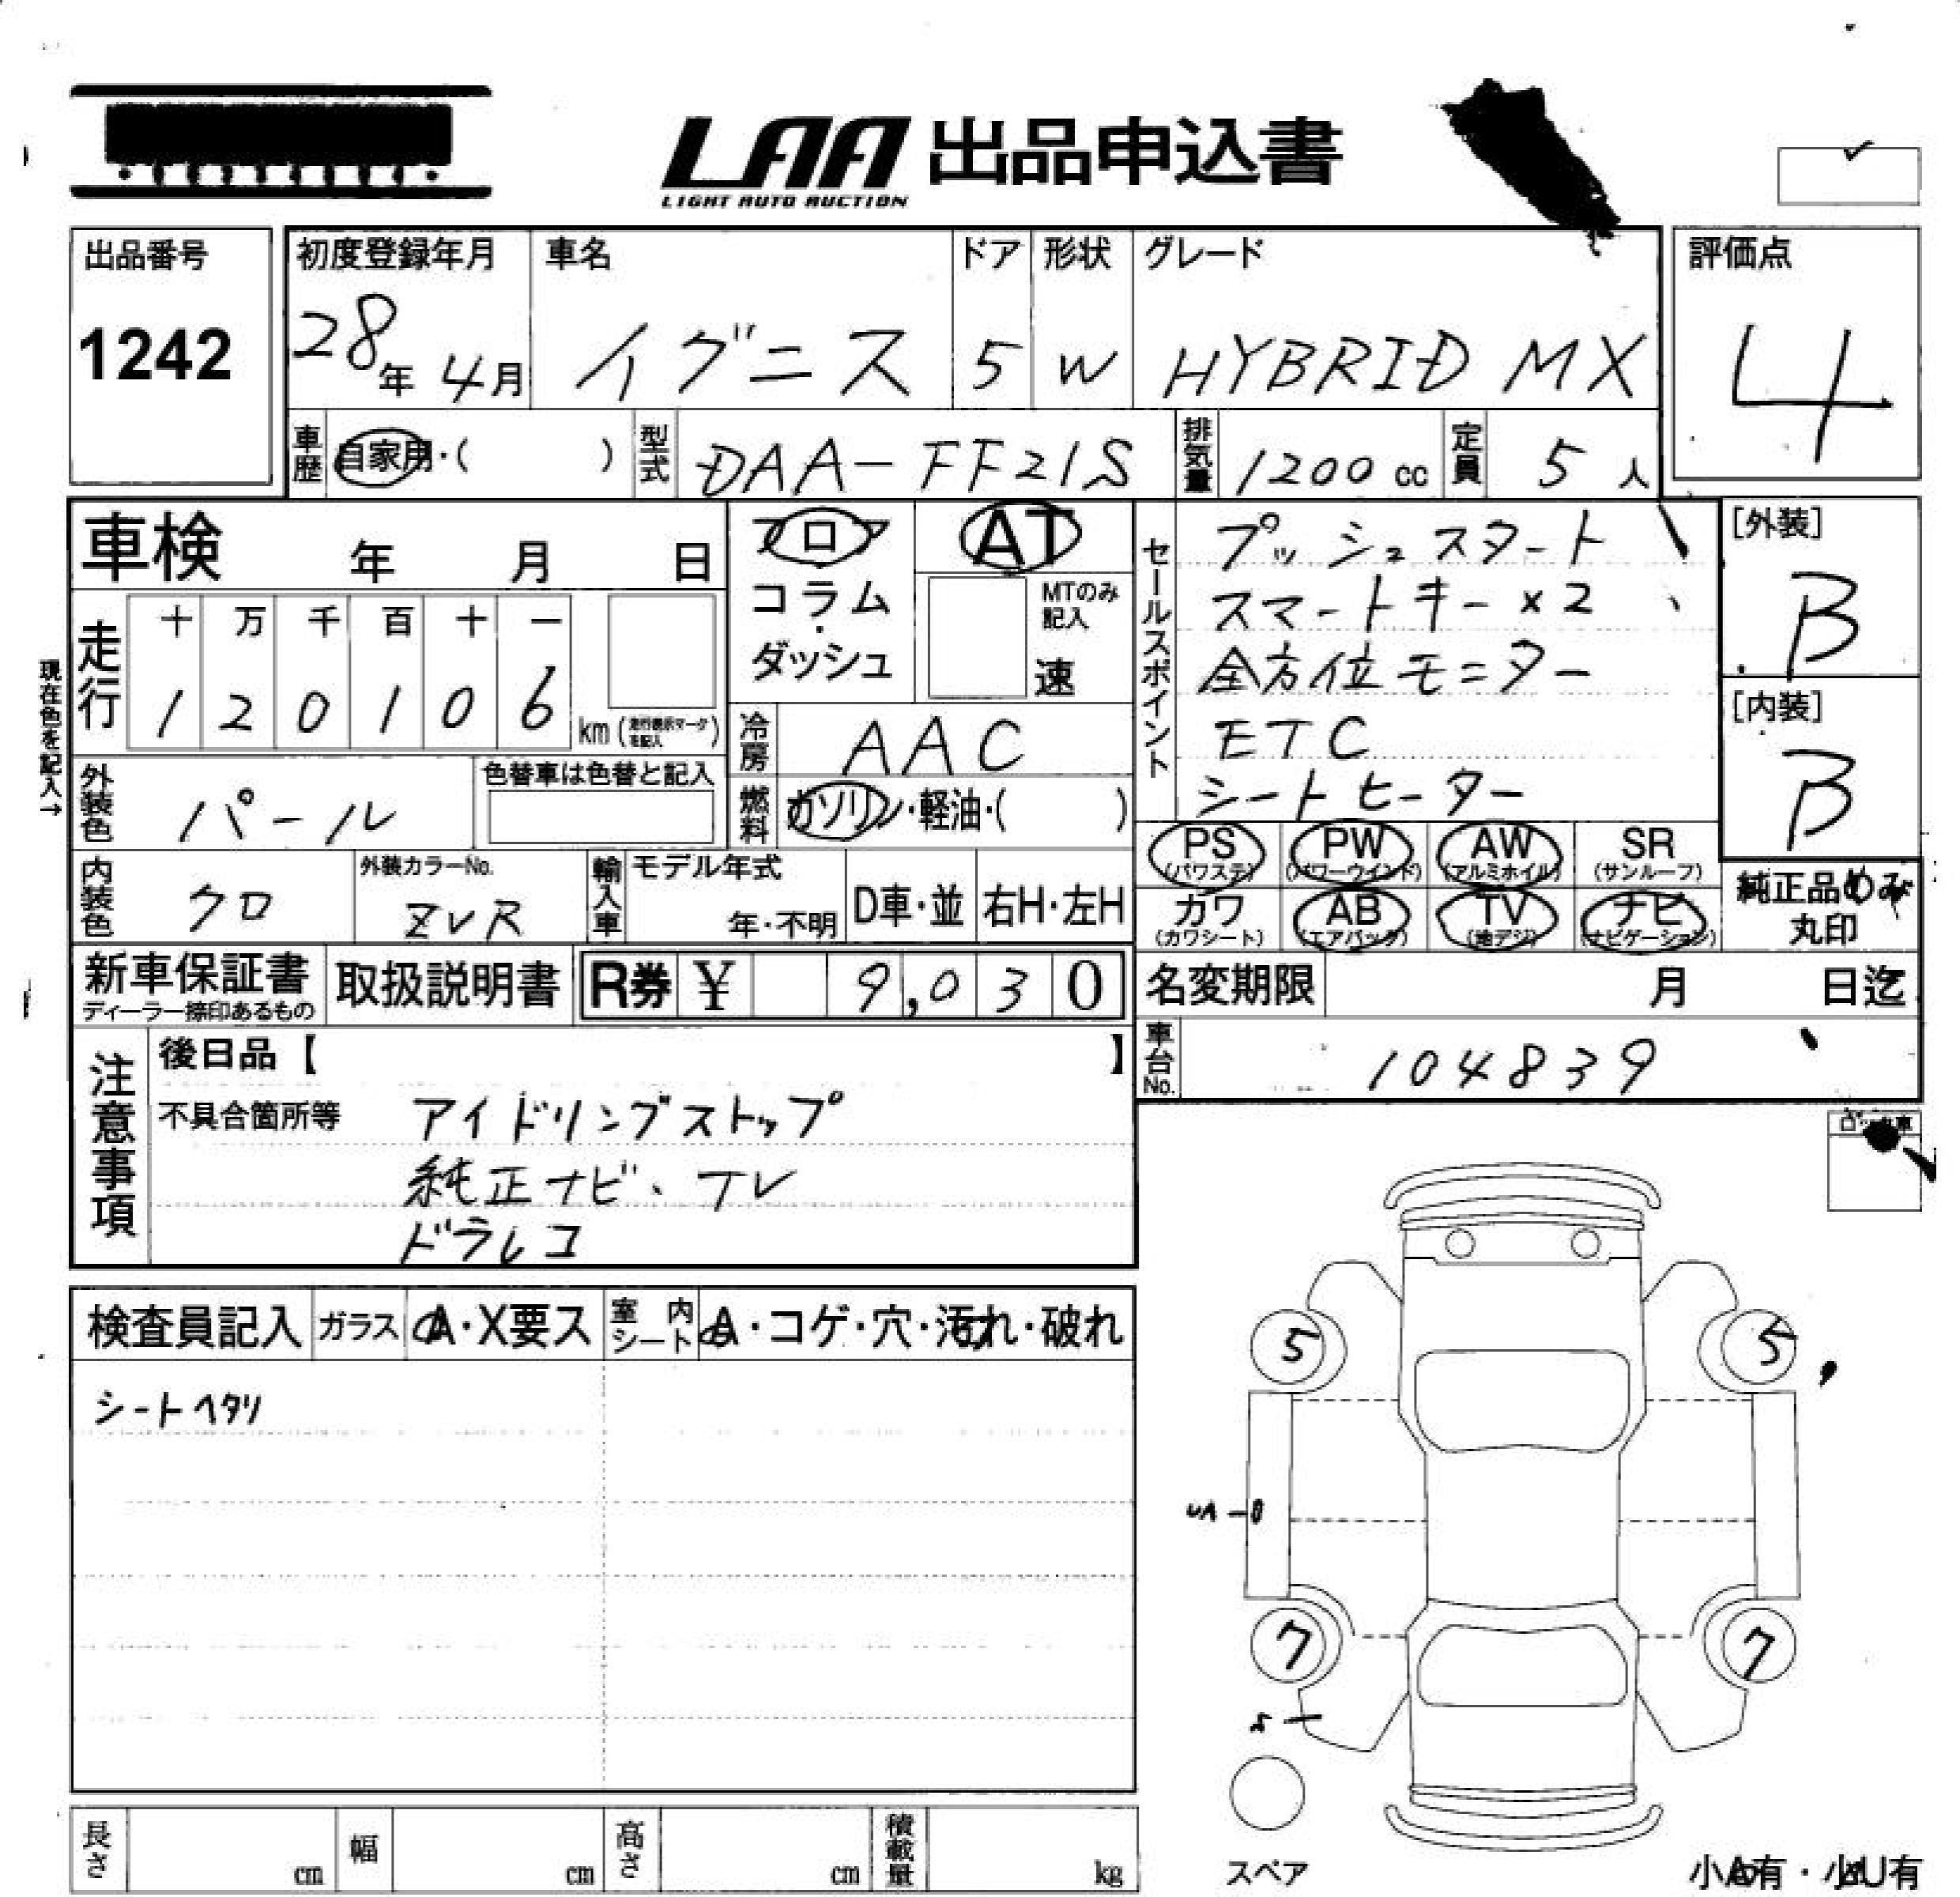 LAA 出品申込書
LIGHT AUTO AUCTION
出品番号
1242
初度登録年月
28年 4月
車名
イグニス
ドア
5
形状
W
グレード
HYBRID MX
評価点
4
車歴
自家用・( )
型式
DAA-FF21S
排気量
1200 cc
定員
5 人
車検 年 月 日
フロア
コラム
・
ダッシュ
AT
MTのみ記入
速
セールスポイント
プッシュスタート
スマートキー×2
全方位モニター
ETC
シートヒーター
[外装]
B
[内装]
B
現在色を記入→
走行
十 万 千 百 十 一
1 2 0 1 0 6
km (走行表示マークを記入)
冷房
AAC
外装色
パール
色替車は色替と記入
燃料
ガソリン・軽油・( )
PS (パワステ)
PW (パワーウインド)
AW (アルミホイル)
SR (サンルーフ)
カワ (カワシート)
AB (エアバック)
TV (地デジ)
ナビ (ナビゲーション)
純正品のみ
丸印
内装色
クロ
外装カラーNo.
ZVR
輸入車
モデル年式
年・不明
D車・並
右H・左H
新車保証書
ディーラー捺印あるもの
取扱説明書
R券 ¥ 9,030
名変期限 月 日迄
車台No.
104839
注意事項
後日品【 】
不具合箇所等
アイドリングストップ
純正ナビ、テレ
ドラレコ
検査員記入
ガラス
A・X要ス
室内シート
A・コゲ・穴・汚れ・破れ
シートヘタリ
5
5
7
7
スペア
長さ cm
幅 cm
高さ cm
積載量 kg
小A有・小U有